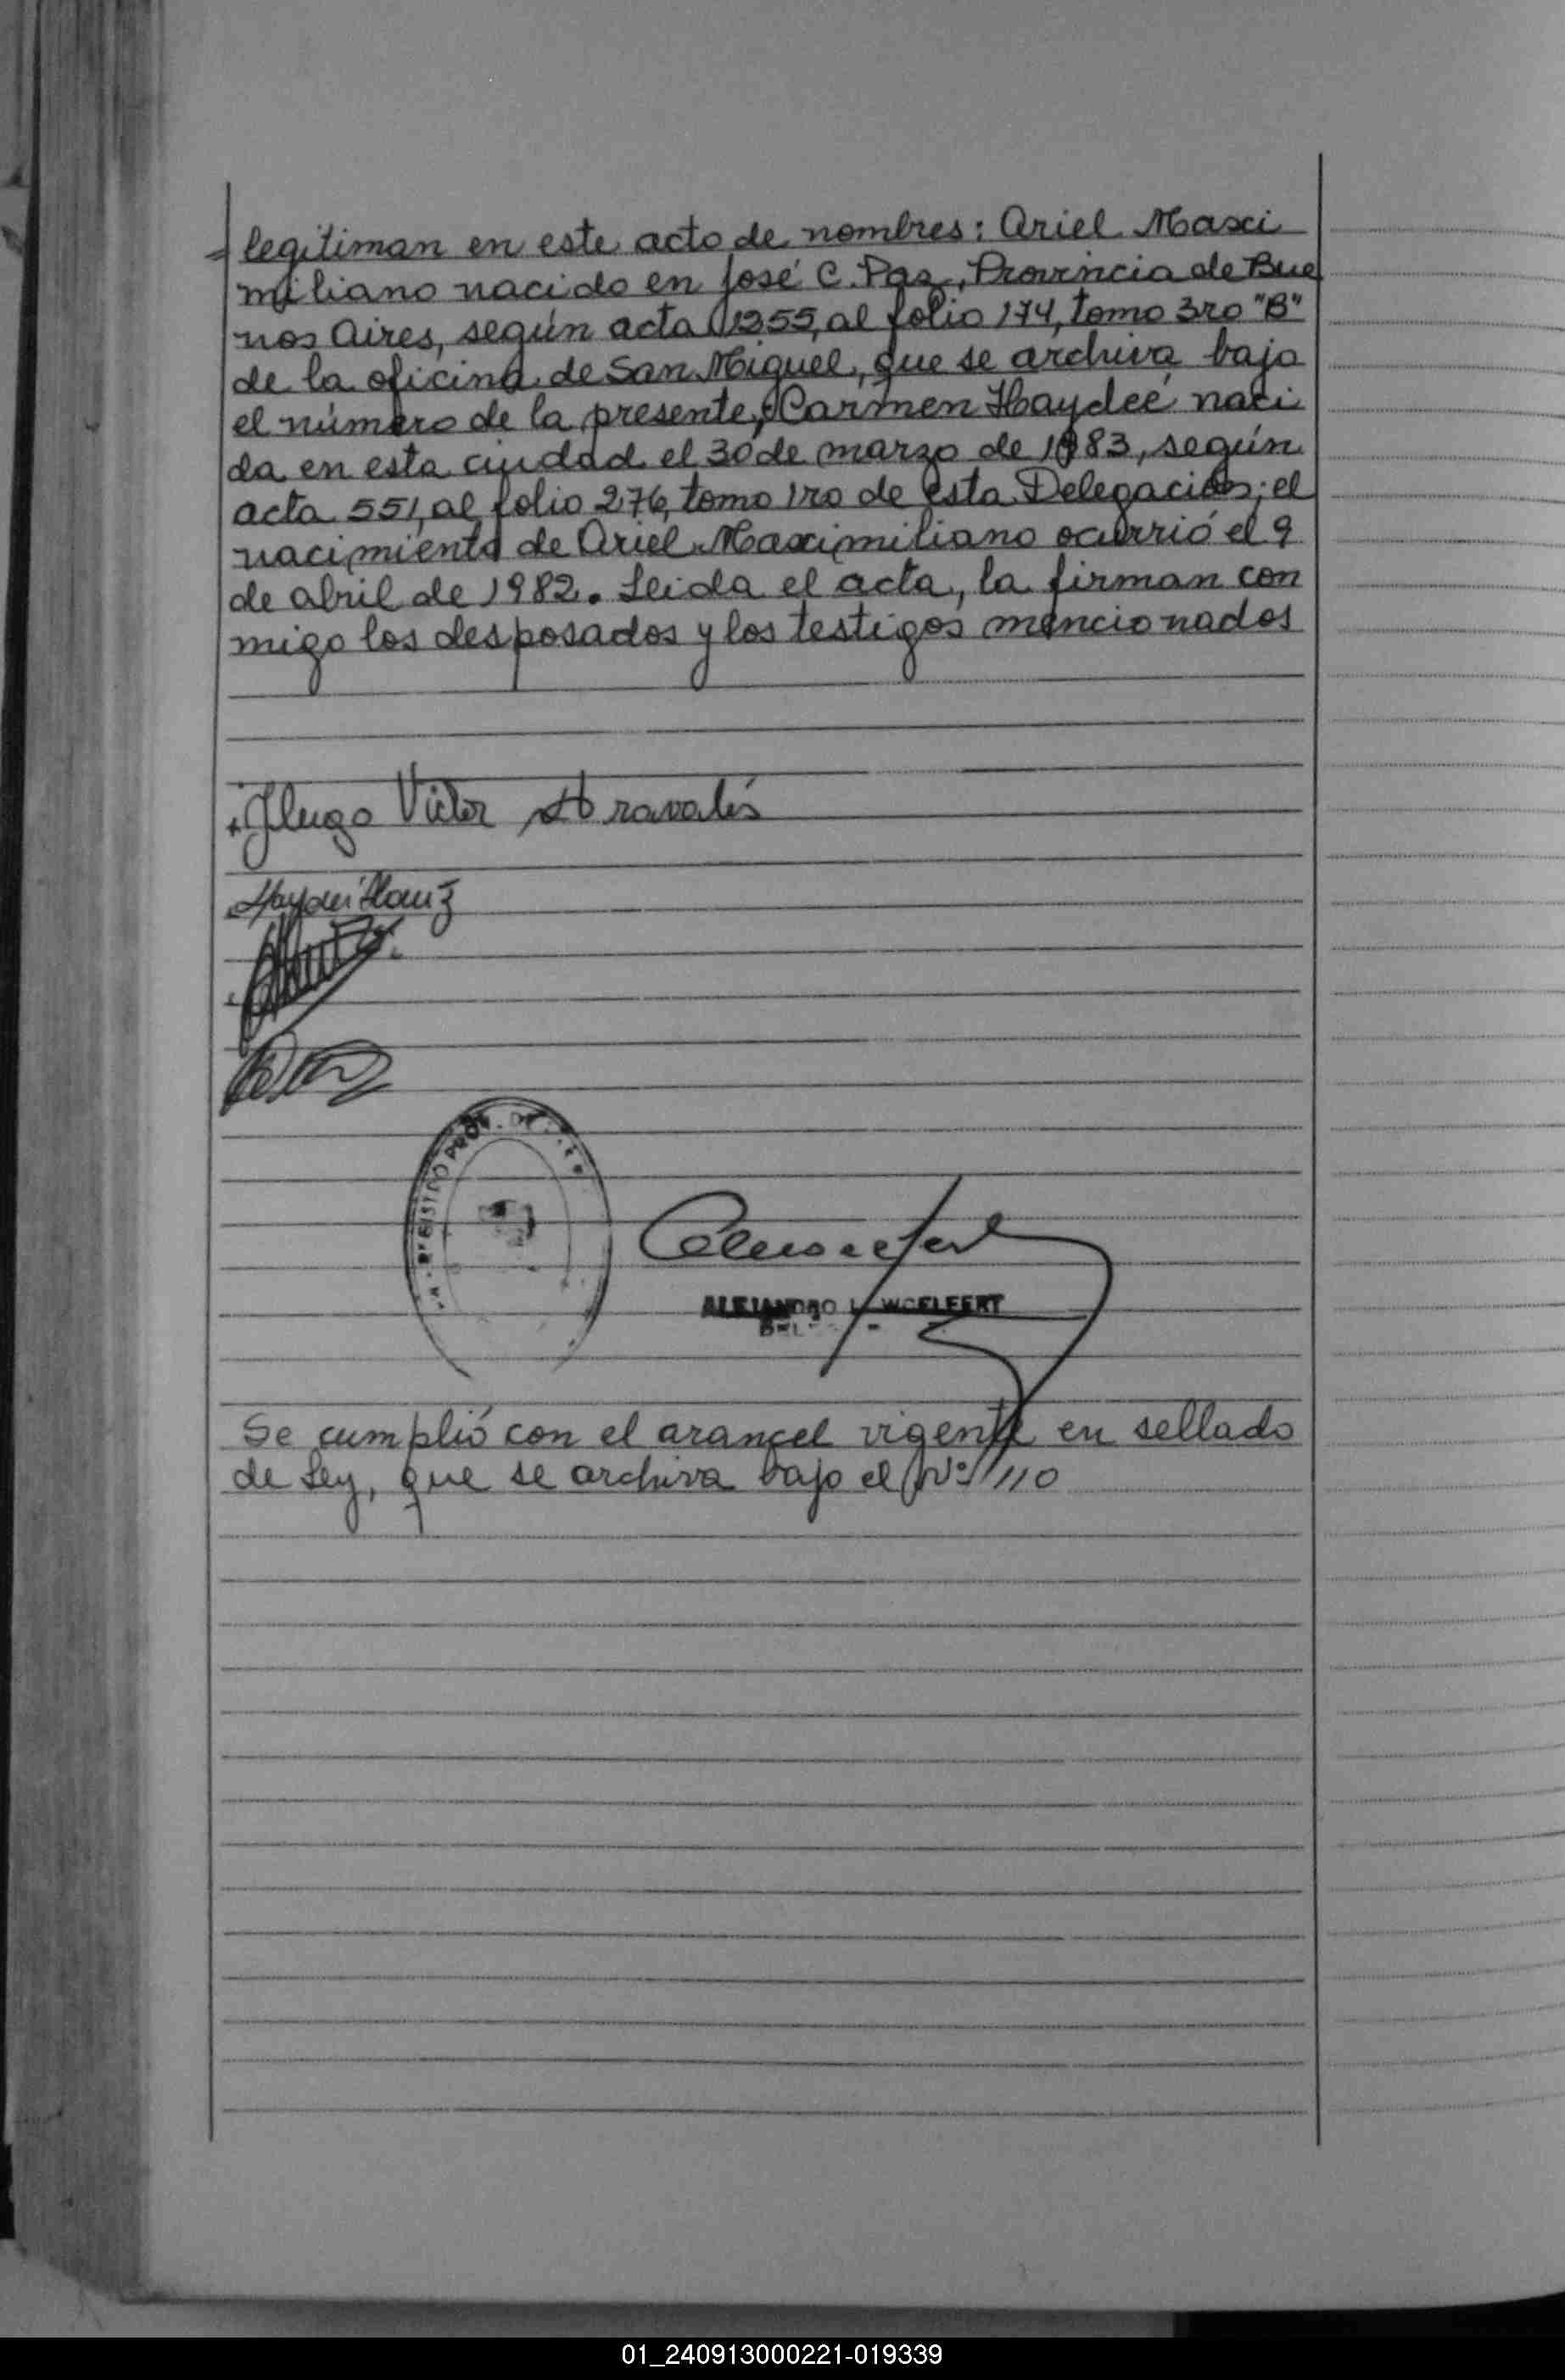 legitiman en este acto de nombres: Ariel Maxi
miliano nacido en José C. Paz, Provincia de Bue
nos Aires, según acta 1355, al folio 174, tomo 3ro "B"
de la oficina de San Miguel, que se archiva bajo
el número de la presente, Carmen Haydeé naci
da en esta ciudad el 30 de marzo de 1983, según
acta 551, al folio 276, tomo 1ro de esta Delegación; el
nacimiento de Ariel Maximiliano ocurrió el 9
de abril de 1982. Leida el acta, la firman con
migo los desposados y los testigos mencionados
Hugo Victor
ALEJANDRO L. WOELFERT
Se cumplió con el arancel vigente en sellado
de Ley, que se archiva bajo el Nº 110
01_240913000221-019339